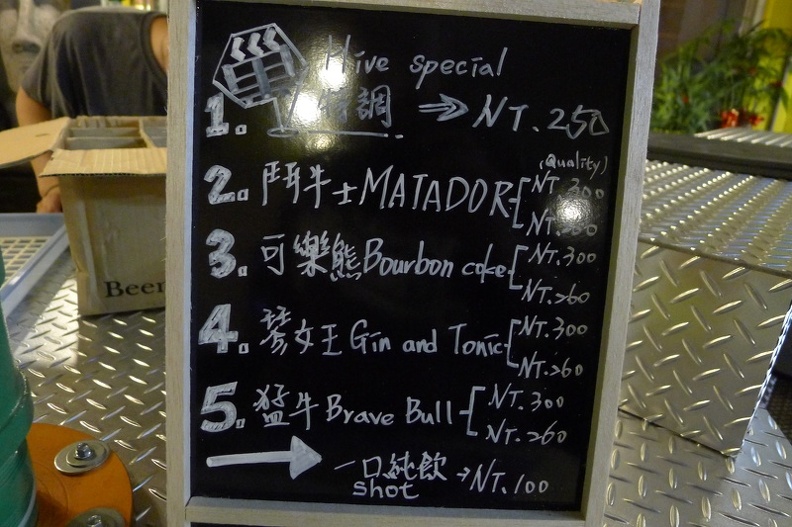 Hive special
1. 特調 ⇒ NT.250
(Quality)
2. 鬥牛士 MATADOR NT.300
3. 可樂熊 Bourbon coke NT.300
NT.260
4. 琴女王 Gin and Tonic NT.300
NT.260
5. 猛牛 Brave Bull NT.300
NT.260
→ 一口純飲 → NT.100
shot
Beer